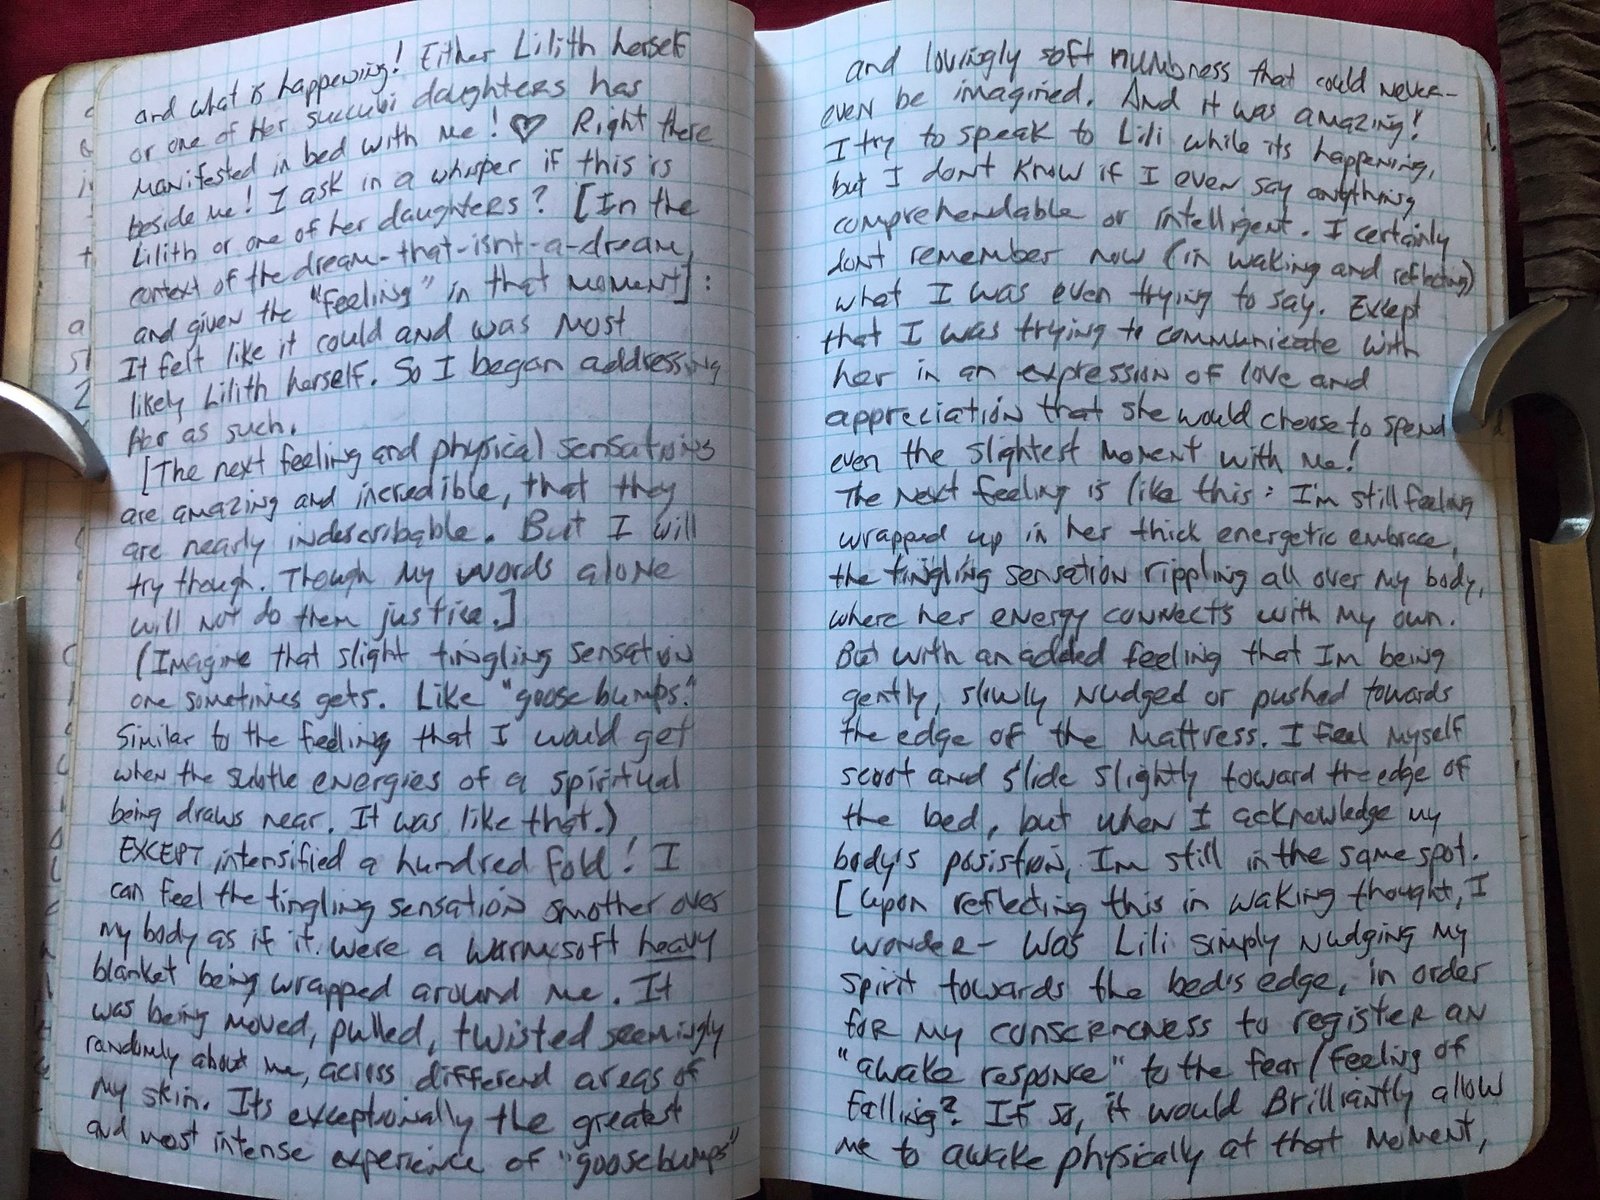 and what is happening! Either Lilith herself
or one of Her succubi daughters has
manifested in bed with me! ♡ Right there
beside me! I ask in a whisper if this is
Lilith or one of her daughters? [In the
context of the dream-that-isnt-a-dream,
and given the "feeling" in that moment]:
It felt like it could and was most
likely Lilith herself. So I began addressing
Her as such.
[The next feeling and physical sensations
are amazing and incredible, that they
are nearly indescribable. But I will
try though. Though my words alone
will not do them justice.]
(Imagine that slight tingling sensation
one sometimes gets. Like "goosebumps."
Similar to the feeling that I would get
when the subtle energies of a spiritual
being draws near. It was like that.)
EXCEPT intensified a hundred fold! I
can feel the tingling sensation smother over
my body as if it were a warm soft heavy
blanket being wrapped around me. It
was being moved, pulled, twisted seemingly
randomly about me, across different areas of
my skin. Its exceptionally the greatest
and most intense experience of "goosebumps"
and lovingly soft numbness that could never-
even be imagined. And it was amazing!
I try to speak to Lili while its happening,
but I dont know if I even say anything
comprehendable or intelligent. I certainly
dont remember now (in waking and reflecting)
what I was even trying to say. Except
that I was trying to communicate with
her in an expression of love and
appreciation that she would choose to spend
even the slightest moment with me!
The next feeling is like this: I'm still feeling
wrapped up in her thick energetic embrace,
the tingling sensation rippling all over my body,
where her energy connects with my own.
But with an added feeling that Im being
gently, slowly nudged or pushed towards
the edge of the mattress. I feel myself
scoot and slide slightly toward the edge of
the bed, but when I acknowledge my
body's posistion, Im still in the same spot.
[Upon reflecting this in waking thought, I
wonder- was Lili simply nudging my
spirit towards the bed's edge, in order
for my consciencness to register an
"awake responce" to the fear/feeling of
falling? If so, it would Brilliantly allow
me to awake physically at that moment,